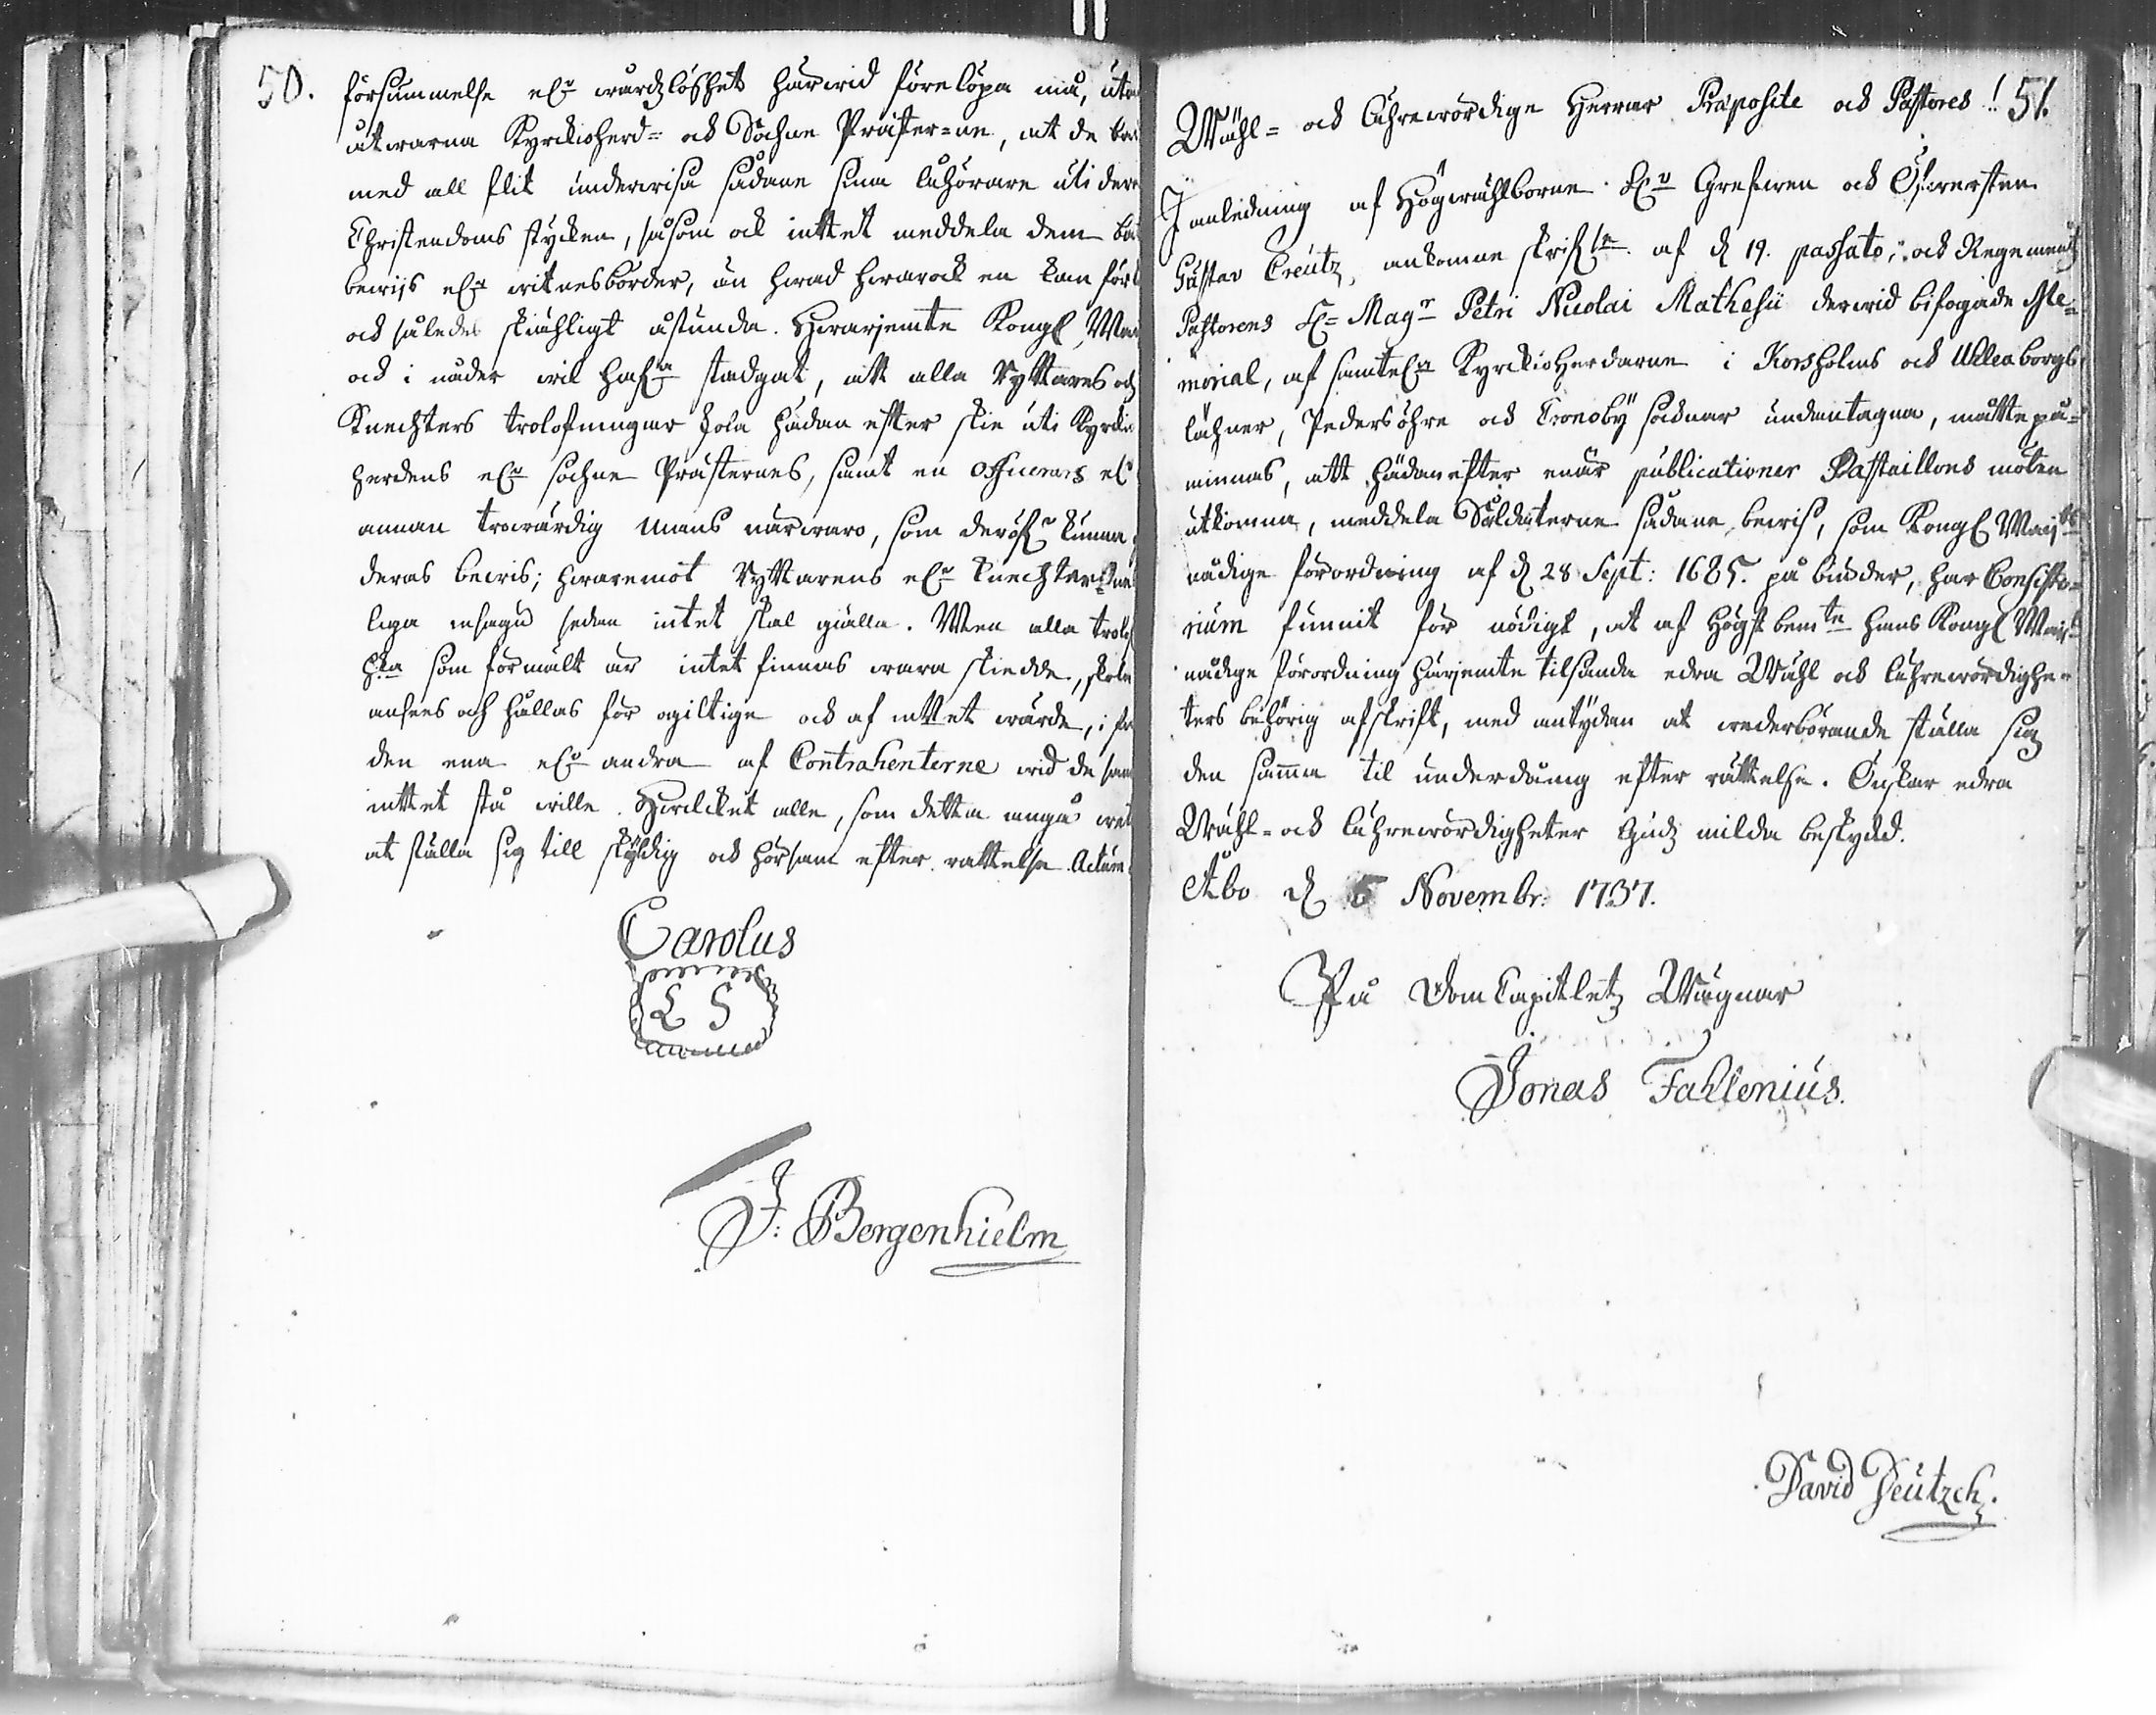 50.
försummelse elr wårdzlöshet härwid förelöpa må, utan
åtwarna Kyrckioherd= ock Sochne Präster=ne, att de
med all flit underwisa sådane sina åhörare uti deras
Christendoms stycken, såsom ock inttet meddela dem
bewijs elr witnesbörder, än hwad hwarock en kan
ock således skiähligt åstunda. Hwarjemte Kongl. Maij
ock i nåder wil hafwa stadgat, att alla Ryttares och
Knechters trolofningar skola hädan efter skie uti Kyrckio
herdens elr sochne Prästernes, samt en officerares elr
annan trowärdig mans närwaro, som deröfr kunna
deras bewis; hwaremot Ryttarens elr knechtens
liga utsago sedan intet skal gjälla. Men alla trolof
som förmält är intet finnas wara skiedde, skola
anses och hållas för ogiltige ock af inttet wärde, i fa
den ena elr andra af Contrahenterne wid de sam
inttet stå wille. Hwilcket alle, som detta angå
at ställa sig till skyldig ock hörsam efter rättelse. Actum
Carolus
L S
J: Bergenhielm
51.
Wähl= ock Ährewördige Herrar Præposite ock Pastores!
I anledning af Högwählborne Hr Grefwen ock Öfwersten
Gustav Creutz, ankomne skrifwelse af d 19. passato, ock Regementz
Pastorens Hr Magr Petri Nicolai Mathesii derwid bifogade Me=
morial, af samtel. Kyrckioherdarne i Korsholms ock Uhleaborgs
lähner, Pedersöhre ock Cronoby socknar undantagna, måtte på=
minnas, att hädanefter enär publicationer Bastaillons möten
utkomma, meddela Soldaterne sådane bewis, som Kongl Maijts
nådige förordning af d 28 Sept: 1685. på biuder, har Consisto=
rium funnit för nödigt, at af Högst bemte hans Kongl Maijts
nådige förordning härjemte tilsända edra Wähl ock Ährewördighe=
ters behörig afskrift, med antydan at wederbörande ställa sig
den samma til underdånig efter rättelse. Önskar edra
Wähl= ock Ährewördigheter Gudz milda beskydd.
Åbo d 6 Novembr: 1737.
På DomCapitletz Wägnar
Jonas Fahlenius.
David Deutzch.